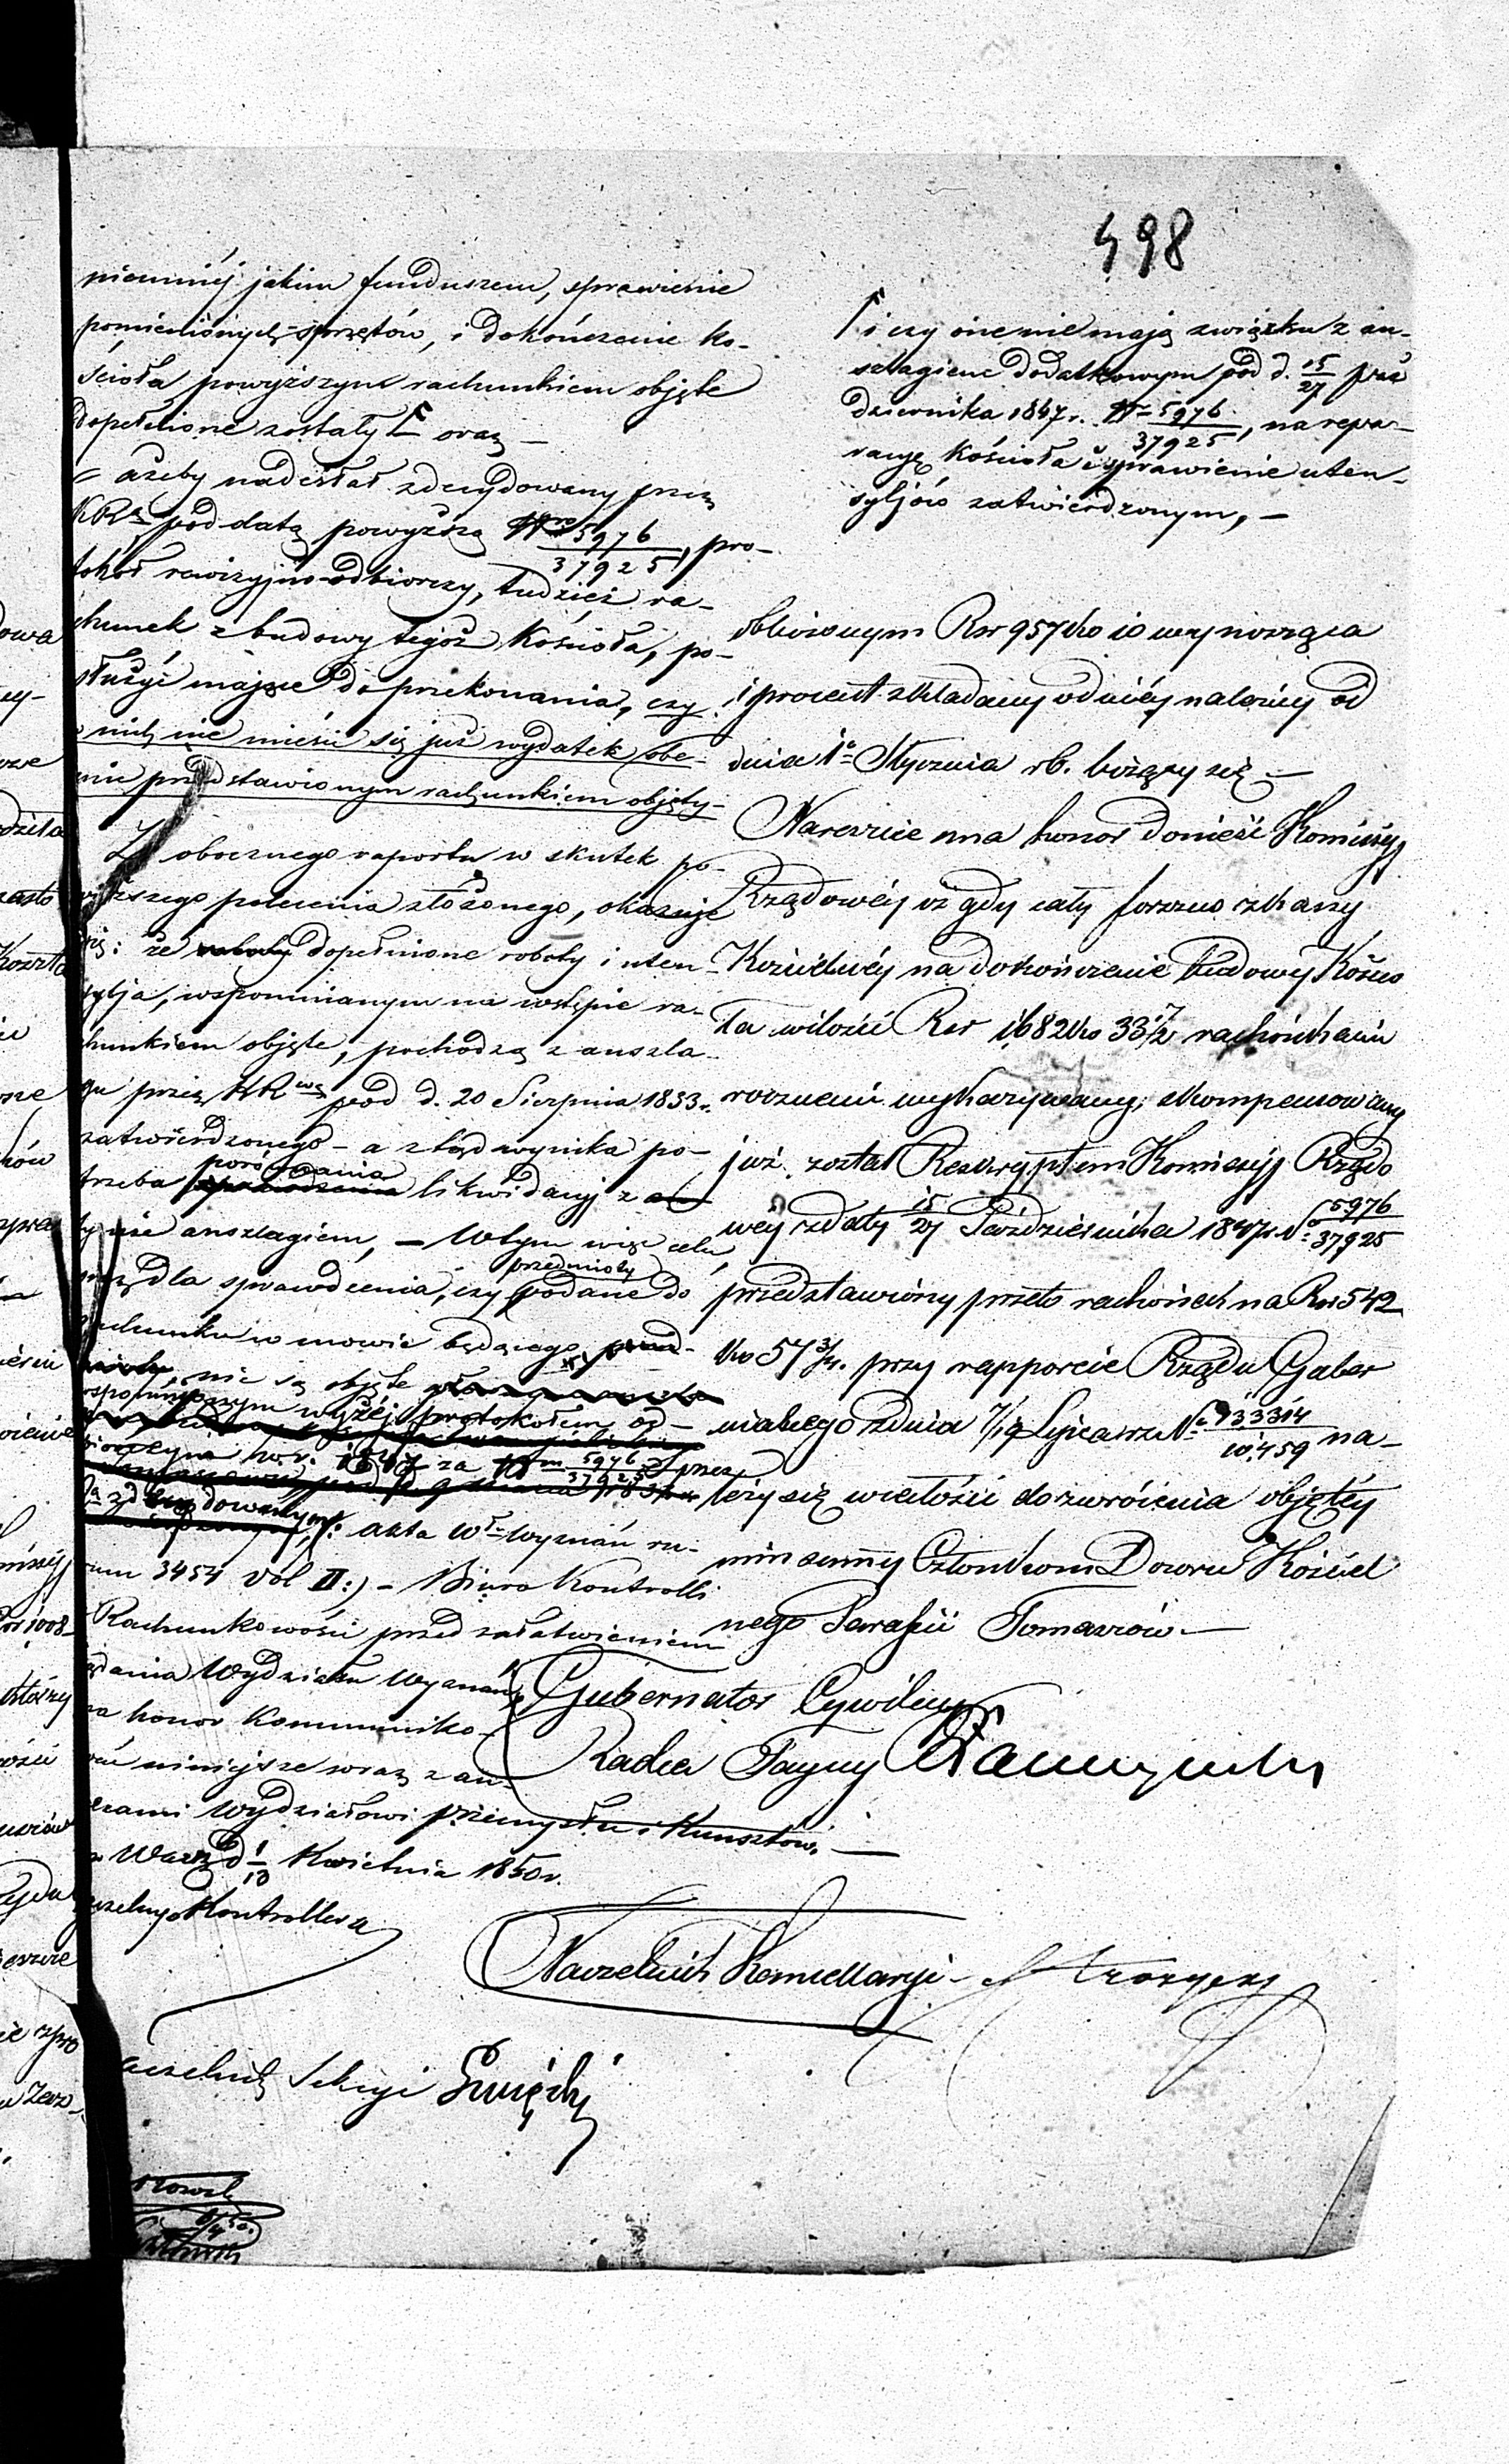 498
niemniéj jakim funduszem, sprawienie
pomienionych sprzętów, i dokończenie ko-
ścioła powyższym rachunkiem objęte
dopełnione zostały oraz —
ażeby nadesłał zdecydowany przez
pod datą powyższą N 5976/37925, pro-
tokół rewizyjno-odbiorczy, tudzież ra-
chunek z budowy tegoż Kościoła, po-
służyć mające do przekonania, czy
nich nie mieści się już wydatek obe-
cnie przedstawionym rachunkiem objęty—
Z obocznego raportu w skutek po-
wyższego polecenia złożonego, okazuje
się: że dopełnione roboty i uten-
sylja, wspomnianym na wstępie ra-
chunkiem objęte, pochodzą z anszla-
gu przez KR pod d. 20 Sierpnia 1833 r.
zatwierdzonego — a ztąd wynika po-
trzeba porównania likwidacyj z
tymże anszlagiem, — W tym więc celu,
oraz dla sprawdzenia, czy przedmioty podane do
rachunku w mowie będącego
nie są objęte
wspomnionym wyżej protokołem od-
biorczym w r. 1847 za N 5976/37925 przez
zdecydowanym /: akta Wł Wyznań
3454 Vol II :) — Biuro Kontrolli
Rachunkowości przed załatwieniem
żądania Wydziału Wyznań,
ma honor kommuniko-
wać niniejsze wraz z an-
exami Wydziałowi Przemysłu i Kunsztów. —
w Warsz d 1/13 Kwietnia 1850 r.
Naczelny Kontroller
Naczelnik Sekcyi
i czy one nie mają związku z an-
szlagiem dodatkowym pod d. 15/27 paź
dziernika 1847 r. N 5976/37925, na repa-
racyę Kościoła i sprawienie uten-
syljów zatwierdzonym, —
obliczonym Rsr 957 ko 10 wynosząca
i procent składany od niéj należny od
dnia 1o Stycznia rb. liczący się —
Nareszcie ma honor donieść Komissyi
Rządowéj iż gdy cały forszus z kassy
Kościelnéj na dokończenie budowy Kościo
ła w ilości Rsr 1682 ko 33 1/2 rachónkami
rocznemi wykazywany, skompensowany
już został Reskryptem Komissyj Rządo
wéj z daty 15/27 Października 1847 r. No 5976/37925
przedstawiony przeto rachónek na Rsr 542
ko 57 3/4. przy rapporcie Rządu Guber
nialnego z dnia 7/19 Lipca rz. No 133314/10,459 na-
leży się w całości do zwrócenia objętéj
nim summy Członkom Dozoru Kościel
nego Parafii Tomaszów —
Gubernator Cywilny
Radca Tayny
Naczelnik Kancellaryi